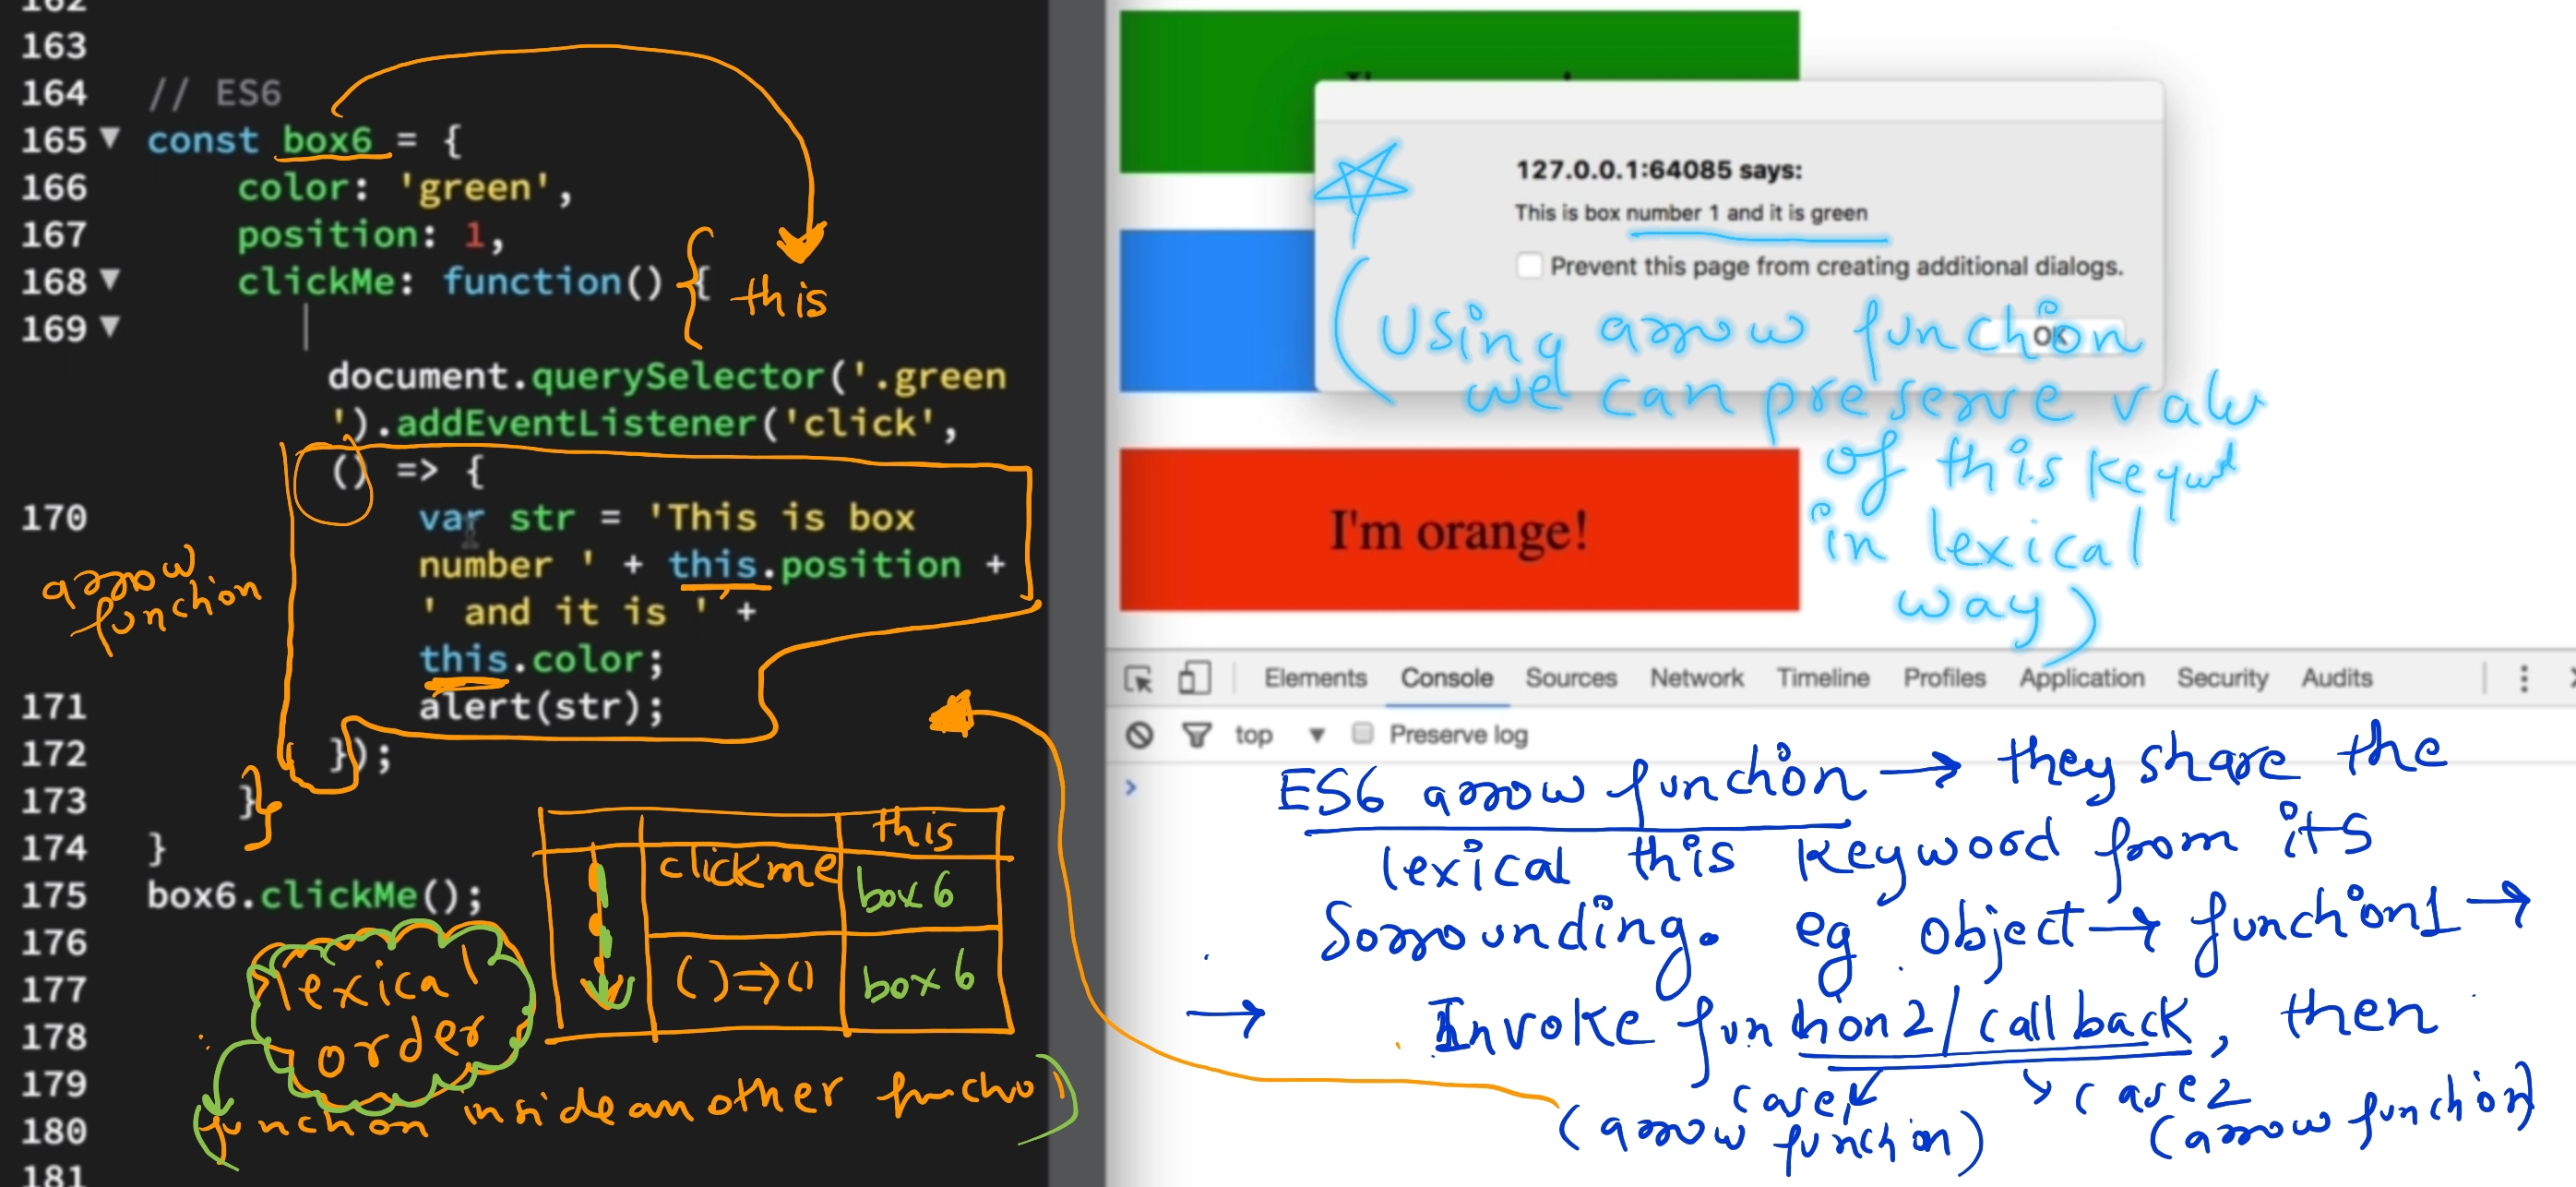 162
163
164 // ES6
165 ▼ const box6 = {
166 color: 'green',
167 position: 1,
168 ▼ clickMe: function() {
169 ▼
document.querySelector('.green
').addEventListener('click',
() => {
170 var str = 'This is box
number ' + this.position +
' and it is ' +
this.color;
171 alert(str);
172 });
173 }
174 }
175 box6.clickMe();
176
177
178
179
180
181
this
arrow
function
this
clickme box 6
()=>() box 6
lexical
order
function inside another functio
127.0.0.1:64085 says:
This is box number 1 and it is green
Prevent this page from creating additional dialogs.
OK
(Using arrow function
we can preserve
of this
in lexical
way)
I'm orange!
Elements Console Sources Network Timeline Profiles Application Security Audits
top ▼ Preserve log
>
ES6 arrow function → they share the
lexical this keyword from its
Sorrounding. eg object → function1 →
→ Invoke function2/callback, then
case1 case2
(arrow function) (arrow function)